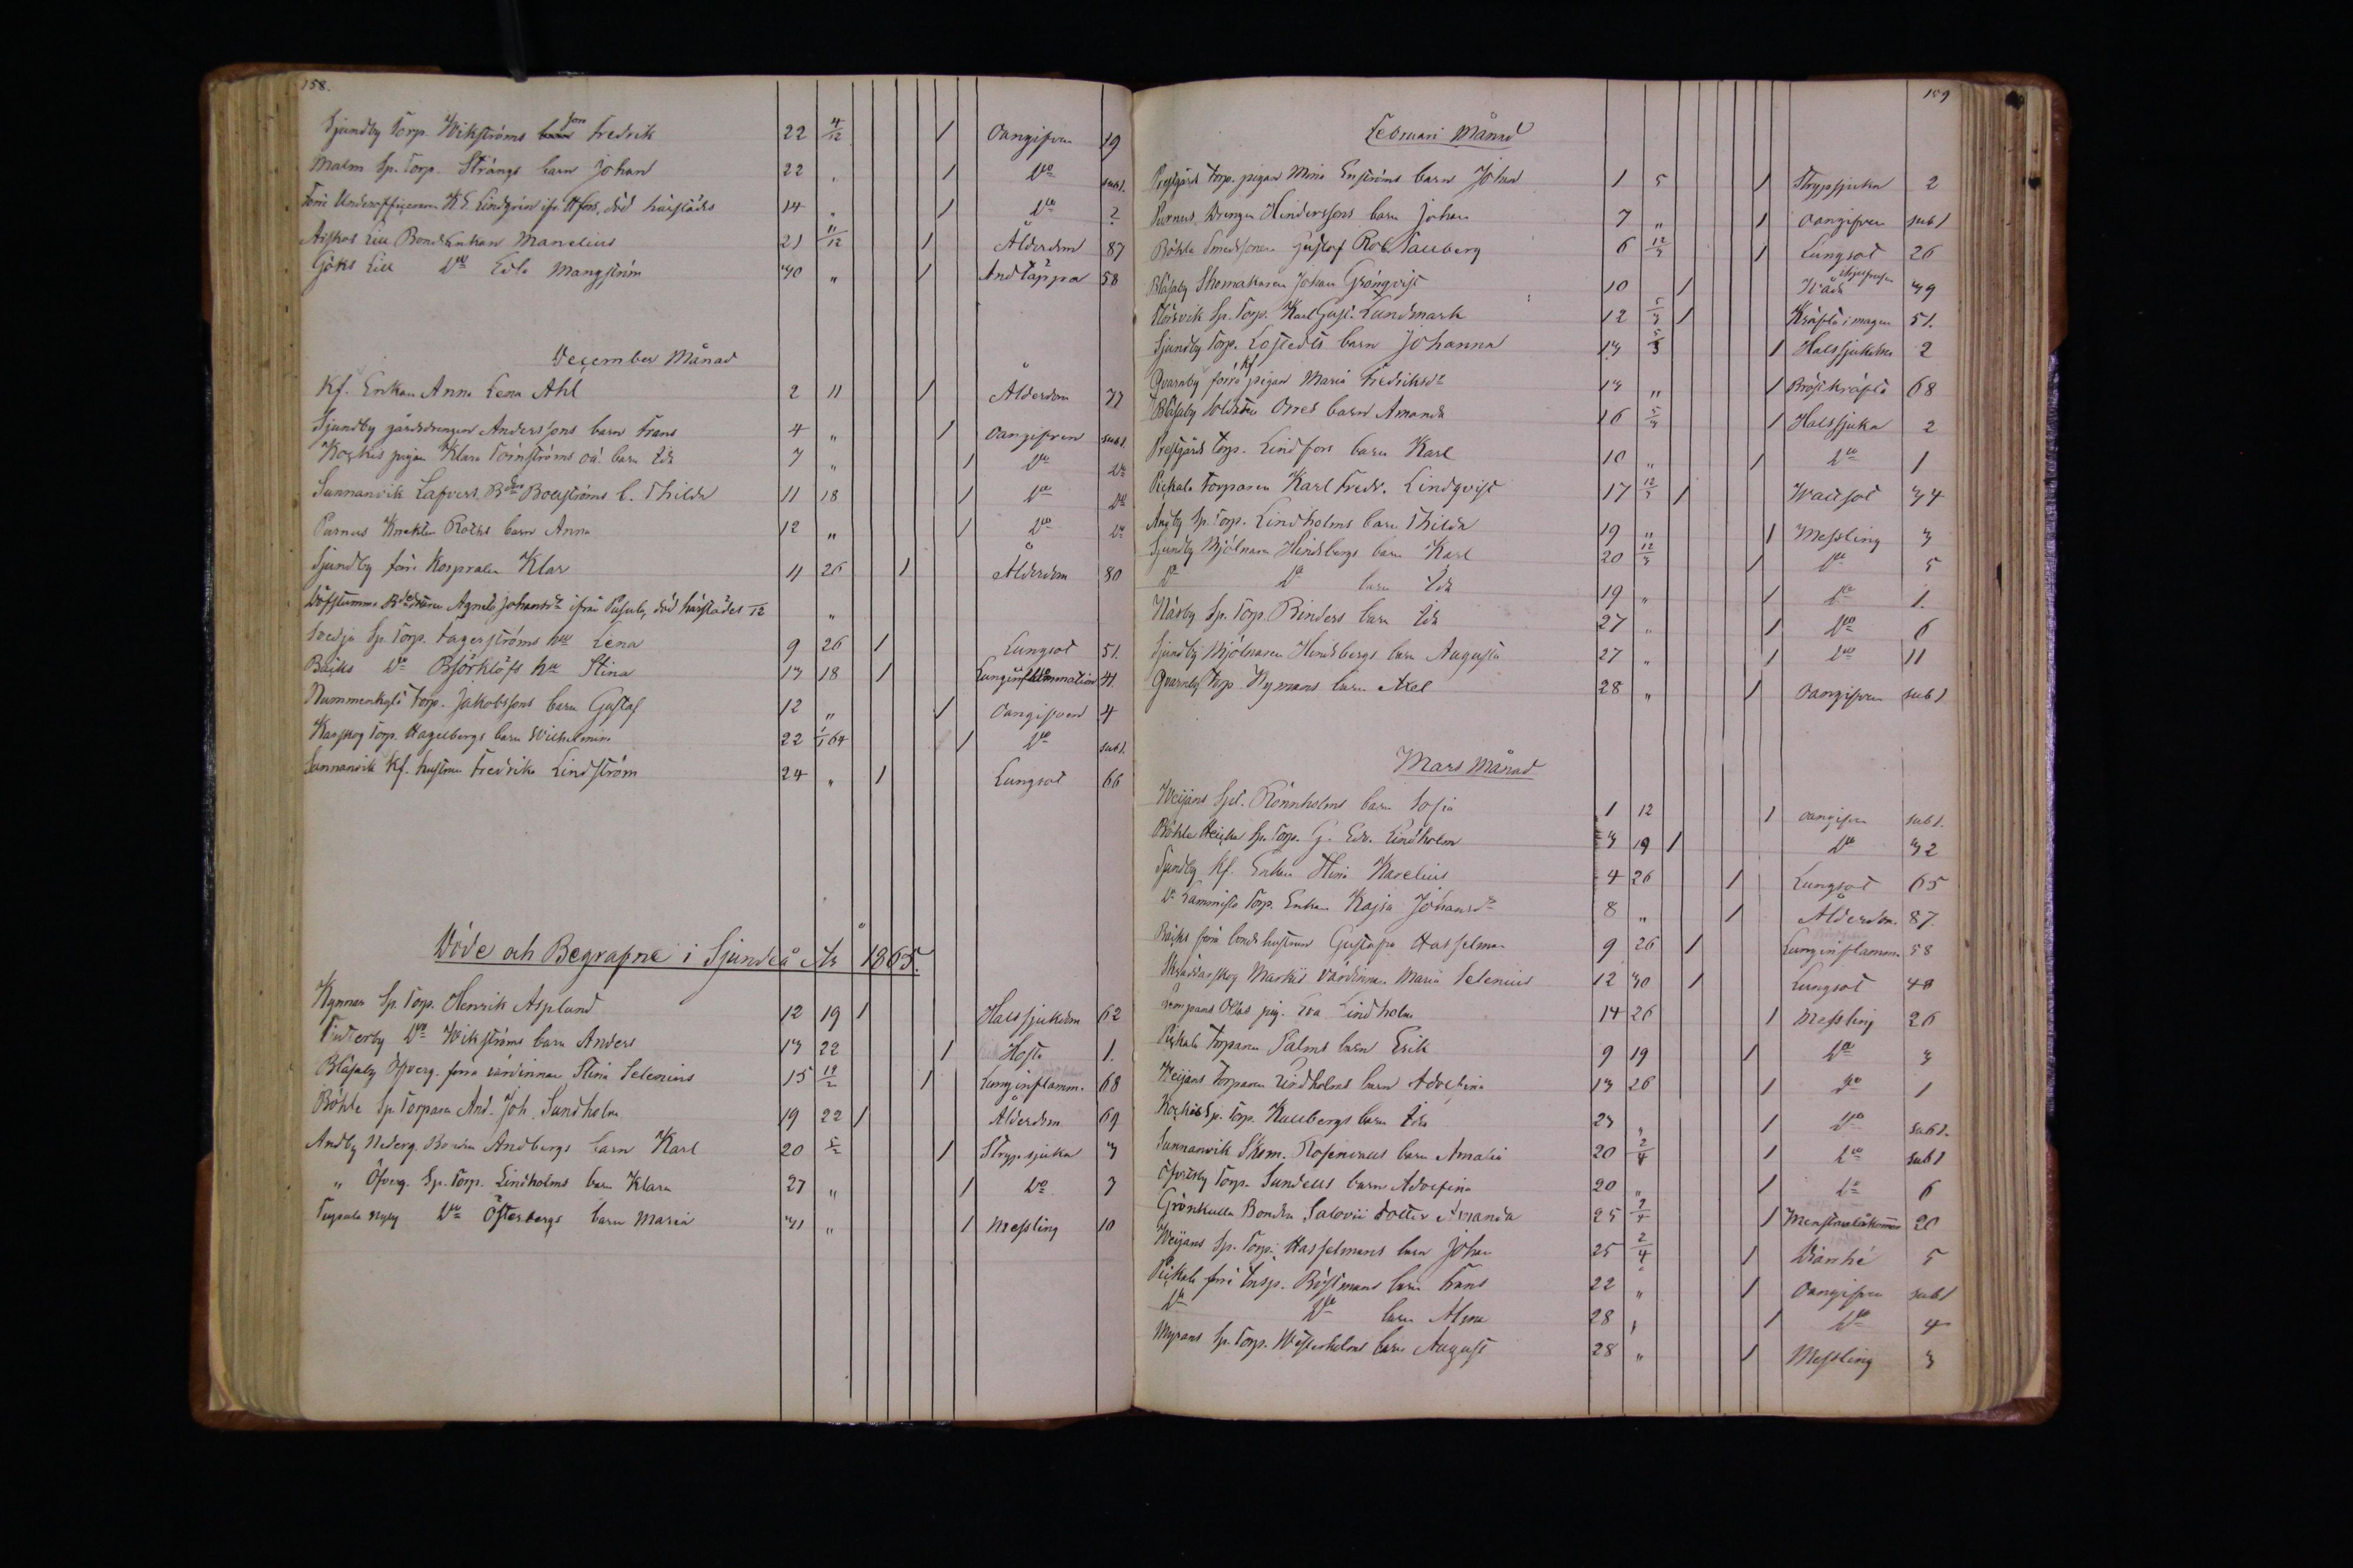 158.
Sjundby Torp. Wikströms son Fredrik 22 4/12 1 Oangifven 19
Malm Sp. Torp. Strångs barn Johan 22 " 1 Do sub 1.
Förre Underofficeraren K. E. Lindgren ifr. Hfors, död härstädes 14 " 1 Do 2
Aiskos Lill Bonde Enkan Manelius 21 11/12 1 Ålderdom 87
Göks Lill Do Edla Mangström 30 " 1 Andtäppa 58
December Månad
Kf. Enkan Anna Lena Ahl 2 11 1 Ålderdom 77
Sjundby gårdsdrengen Anderssons barn Frans 4 " 1 Oangifven sub 1.
Kockis pigan Klara Törnströms oä. barn Ida 7 " 1 Do Do
Sunnanvik Bouströms b. Thilda 11 18 1 Do Do
Purnus Knekten Roths barn Anna 12 " 1 Do Do
Sjundby förre Korpralen Klar 11 26 1 Ålderdom 80
Döfstumma Agneta Johansdr ifrån Pusula, död härstädes 1/12 "
Svedja Sp. Torp. Fagerströms hu Lena 9 26 1 Lungsot 51.
Bäcks Do Björklöfs hu Stina 13 18 1 Lunginflammation 41.
Nummenkylä Torp. Jakobssons barn Gustaf 12 " 1 Oangifven 4
Karskog Torp. Hagelbergs barn Wilhelmina 22 1/1 64 1 Do sub 1.
Sunnanvik Kf. hustrun Fredrika Lindström 24 " 1 Lungsot 66
Döde och Begrafne i Sjundeå År 1865.
Kynnar Sp. Torp. Henrik Asplund 12 19 1 Halssjukdom 62
Finterby Do Wikströms barn Anders 13 22 1 Hosta 1.
Blåsaby Öfverg. förra värdinnan Stina Selenius 15 19/2 1 Lunginflamm. 68
Böhle Sp. Torparen And. Joh. Sundholm 19 22 1 Ålderdom 69
Andby Nederg. Bonden Andbergs barn Karl 20 5/2 1 Strypsjuka 3
" Öfverg. Sp. Torp. Lindholms barn Klara 27 " 1 Do 7
Nyby Do Österbergs barn Maria 31 " 1 Messling 10
159
Februari Månad
Prestgårds Torp. pigan Mina Enströms barn Johan 1 5 1 Strypsjuka 2
Purnus Drengen Hinderssons barn Johan 7 " 1 Oangifven sub 1
Böhle Smedsonen Gustaf Rob. Tallberg 6 12/3 1 Lungsot 26
Blåsaby Skomakaren Johan Grönqvist 10 1 Wåda 39
Störsvik Sp. Torp. Karl Gust. Lundmark 12 5/3 1 Kräfta i magen 51.
Sjundby Torp. Lostedts barn Johanna 13 5/3 1 Halssjukdom 2
Qvarnby förra Kf pigan Maria Fredriksdr 13 " 1 Bröstkräfta 68
Blåsaby Soldaten Orres barn Amanda 16 5/3 1 Halssjuka 2
Prestgårds Torp. Lindfors barn Karl 10 " 1 Do 1
Pickala Torparen Karl Fredr. Lindqvist 17 12/3 1 Wattsot 34
Andby Sp. Torp. Lindholms barn Thilda 19 " 1 Messling 3
Sjundby Mjölnaren Hindsbergs barn Karl 20 12/3 1 Do 5
Do Do barn Ida 19 " 1 Do 1.
Näsby Sp. Torp. Rinders barn Ida 27 " 1 Do 6
Sjundby Mjölnaren Hindsbergs barn Augusta 27 " 1 Do 11
Qvarnby Torp. Nymans barn Axel 28 " 1 Oangifven sub 1
Mars Månad
Weijans Spt. Rönnholms barn Sofia 1 12 1 oangifven sub 1.
Böhle Heicka Sp. Torp. G. Edv. Lindholm 3 19 1 Do 32
Sjundby Kf. Enkan Stina Karelius 4 26 1 Lungsot 65
Do Torp. Enkan Kajsa Johansdr 8 " 1 Ålderdom. 87.
Bäcks förra bonde hustrun Gustafva Hasselman 9 26 1 Lunginflamm. 58
Skräddarskog Markus värdinnan Maria Selenius 12 30 1 Lungsot 40
Ollas pig. Eva Lindholm 14 26 1 Messling 26
Pickala Torparen Palms barn Erik 9 19 1 Do 3
Weijans Torparen Lindholms barn Adolfina 13 26 1 Do 1
Kockis Sp. Torp. Kullbergs barn Ida 23 " 1 Do sub 1.
Sunnanvik Skom. Rosendals barn Amalia 20 2/4 1 Do sub 1
Torp. Sundells barn Adolfina 20 " 1 Do 6
Grönkulla Bonden Salovii dotter Amanda 25 2/4 1 20
Weijans Sp. Torp. Hasselmans barn Johan 25 2/4 1 Diarrhé 5
Pickala förre Insp. Böstmans barn Frans 22 " 1 Oangifven sub 1
Do Do barn Alma 28 " 1 Do 4
Myrans Sp. Torp. Westerholms barn August 28 " 1 Messling 3